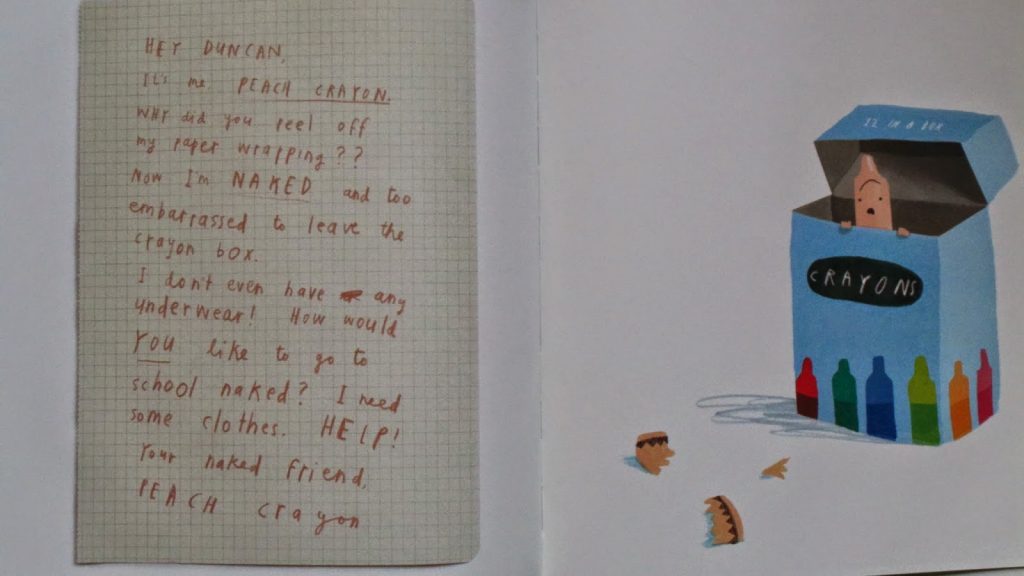 HEY DUNCAN,
It's me, PEACH CRAYON.
WHY did you peel off
my paper wrapping??
Now I'm NAKED and too
embarrassed to leave the
crayon box.
I don't even have any
underwear! How would
YOU like to go to
school naked? I need
some clothes. HELP!
Your naked friend,
PEACH crayon
12 IN A BOX
CRAYONS